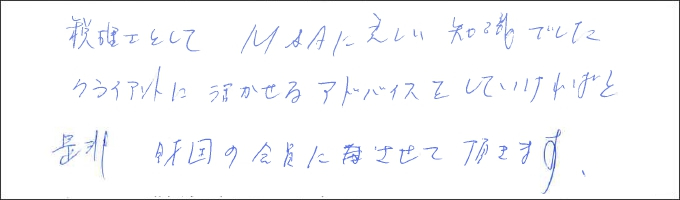 税理士として M&Aに乏しい 知識でした
クライアントに 活かせるアドバイスをしていければと
是非 財団の会員に させて頂きます。